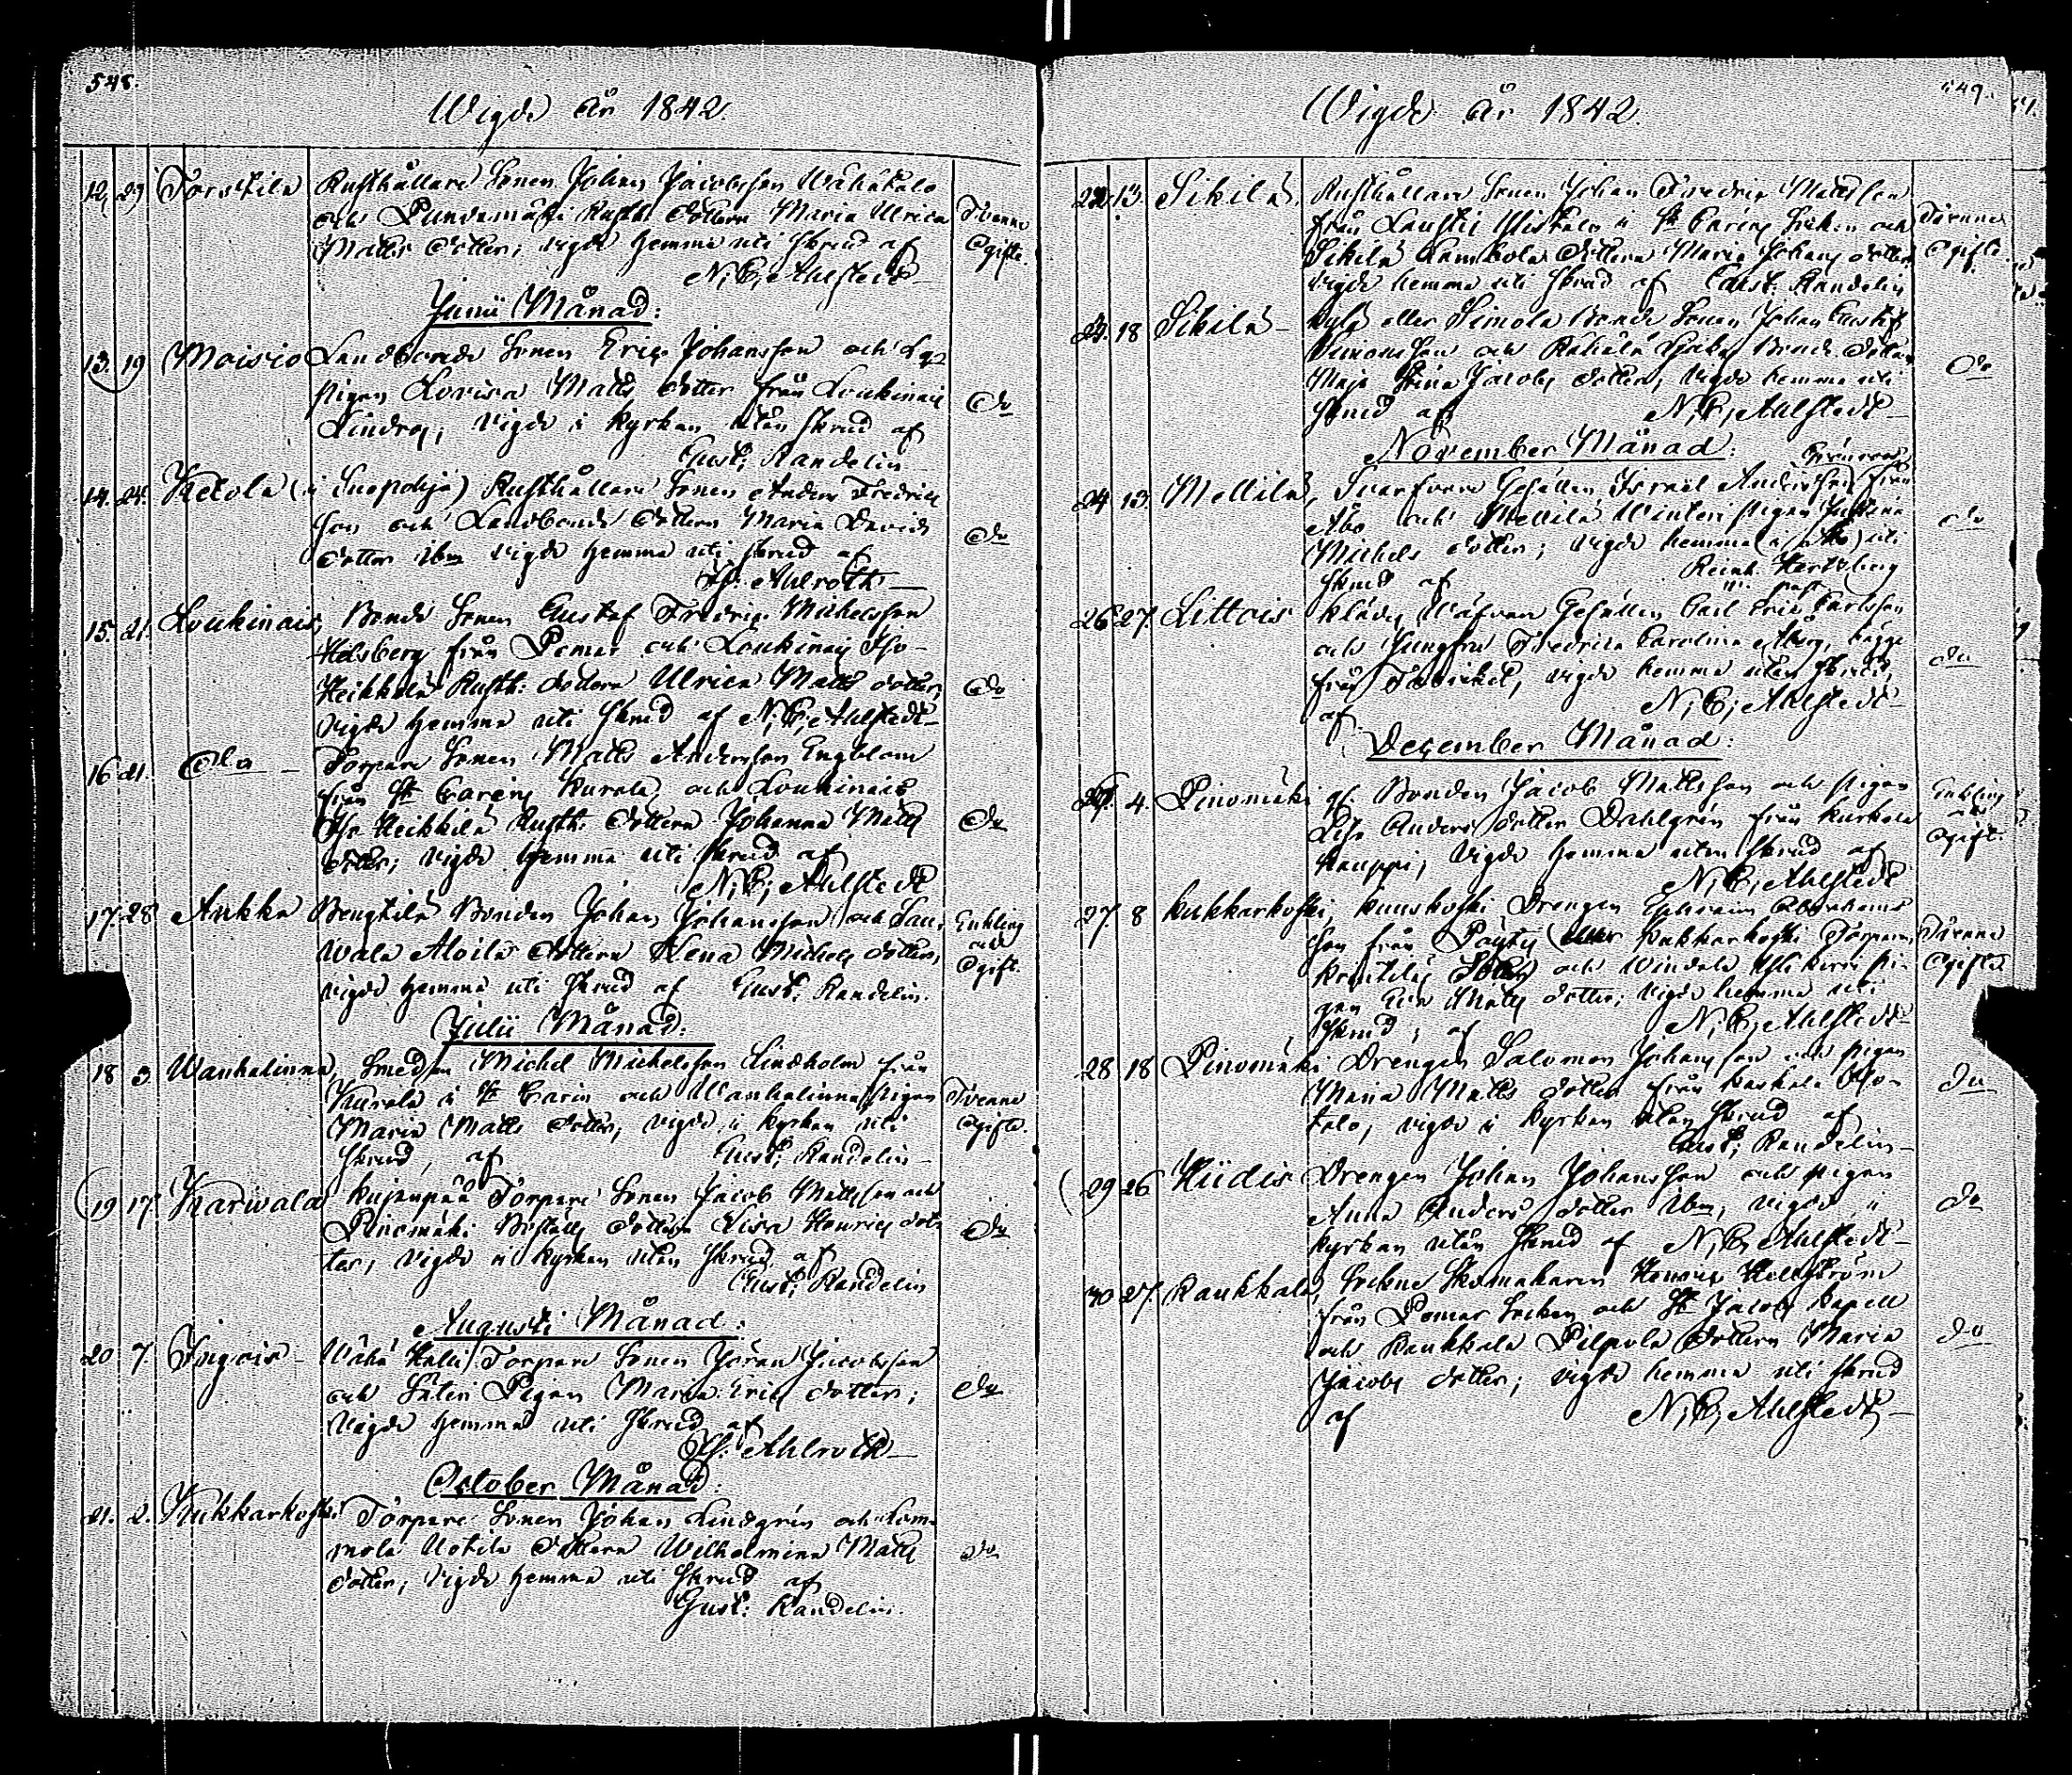 548.
Wigde År 1842.
12, 29 Torstila Rusthållare Sonen Johan Jacobsson Wähätalo
och Rusth: dottern Maria Ulrica Tvenne
Matts dotter; vigde hemma uti skrud af Ogifte.
N, E, Ahlstedt
Junii Månad:
13. 19 Moisio Landbonde Sonen Eric Johansson och
pigan Lovisa Matts dotter från Loukinais do
Lindroj, vigde i kyrkan utan skrud af
Gust: Randelin
14. 24. Ketola (i Suopohja) Rusthållare Sonen Anders Fredric
son och Landbonde dottern Maria Davids do
dotter ibm vigde hemma uti skrud af
Ahlroth
15. 21. Loukinais, Bonde Sonen Gustaf Fredric Michelsson
Helsberg från Pemar och Loukinais Iso-
Heikkilä Rusth: dottern Ulrica Matts dotter, do
vigde hemma uti skrud af N, E, Ahlstedt
16 21. do Torpare Sonen Matts Andersson Engblom
från St Carins Kurala och Loukinais
Iso Heikkilä Rusth: dottern Johanna Matts do
dotter; vigde hemma uti skrud af
N, E, Ahlstedt
17. 28 Aukka Bengtilä Bonden Johan Johansson och Sau, Enkling
vala Aloila dottern Lena Michels dotter, och
vigde hemma uti skrud af Gust: Randelin. Ogift.
Julii Månad:
18 3 Wanhalinna, Smeden Michel Michelsson Lindholm från
Kurala i St Carin och Wanhalinna pigan Tvenne
Maria Matts dotter, vigde i kyrkan uti Ogifte.
skrud, af Gust: Randelin
19 17. Karwala Kujanpää Torpare Sonen Jacob Mattsson och
Pinomäki dottern Lisa Henrics dot- do
ter, vigde i kyrkan utan skrud af
Gust: Randelin
Augusti Månad:
20 7. Ingois Wähä Torpare Sonen Jöran Jacobsson
och Säteri Pigan Maria Erics dotter; do
vigde hemma uti skrud af
Ahlroth
October Månad:
21. 2. Kukkarkoski Torpare Sonen Johan Lindgrén och Lem-
mola Uotila dottern Wilhelmina Matts do
dotter; vigde hemma uti skrud af
Gust: Randelin.
549.
Wigde År 1842.
22. 13. Sikilä, Rusthållare Sonen Johan Fredric Mattsson
från Lausti i St Carins Sokn och Tvenne
Sikilä dottern Maria Johans dotter Ogifte.
vigde hemma uti skrud af Gust: Randelin
18 Sikilä Kylä eller Simola Bonde Sonen Johan Gustaf
Simonsson och Bonde dottern
Maja Stina Jacobs dotter, vigde hemma uti do
skrud af N, E, Ahlstedt
November Månad:
24 13 Mellilä, Svarfvare Gesällen Israel Andersson från
Åbo och Mellilä pigan Justina do
Michels dotter; vigde hemma (i Åbo) uti
skrud af Reinh. Hertzberg
26 27. Littois Klädes Väfvare Gesällen Carl Eric Carlsson
och Jungfru Fredrica Carolina Åberg, bägge
från Fabriket, vigde hemma utan skrud, do
af N, E, Ahlstedt
December Månad:
4. Pinomäki gf. Bonden Jacob Mattsson och pigan Enkling
Lisa Anders dotter Dahlgrén från Kurkela och
Kauppi, vigde hemma utan skrud af Ogift.
N, E, Ahlstedt
27. 8 Kukkarkoski, Kuuskoski Drengen Ephraim Abrahams
son från Pöytis Kukkarkoski Torparen Tvenne
och pi- Ogifte
gan Eva Matts dotter, vigde hemma uti
skrud, af N, E, Ahlstedt
28 18 Pinomäki Drengen Salomon Johansson och pigan
Maria Matts dotter från Kaskala Iso- do
talo, vigde i kyrkan utan skrud af
Gust: Randelin
29 26 Hiidis Drengen Johan Johansson och pigan
Anna Anders dotter ibm, vigde i do
kyrkan utan skrud af N, E, Ahlstedt
30 27. Kaukkala, Sockne Skomakaren Henric Hellström
från Pemar Socken och St Jacobs Kapell
och Kaukkala Pilpola dottern Maria do
Jacobs dotter; vigde hemma uti skrud
af N, E, Ahlstedt